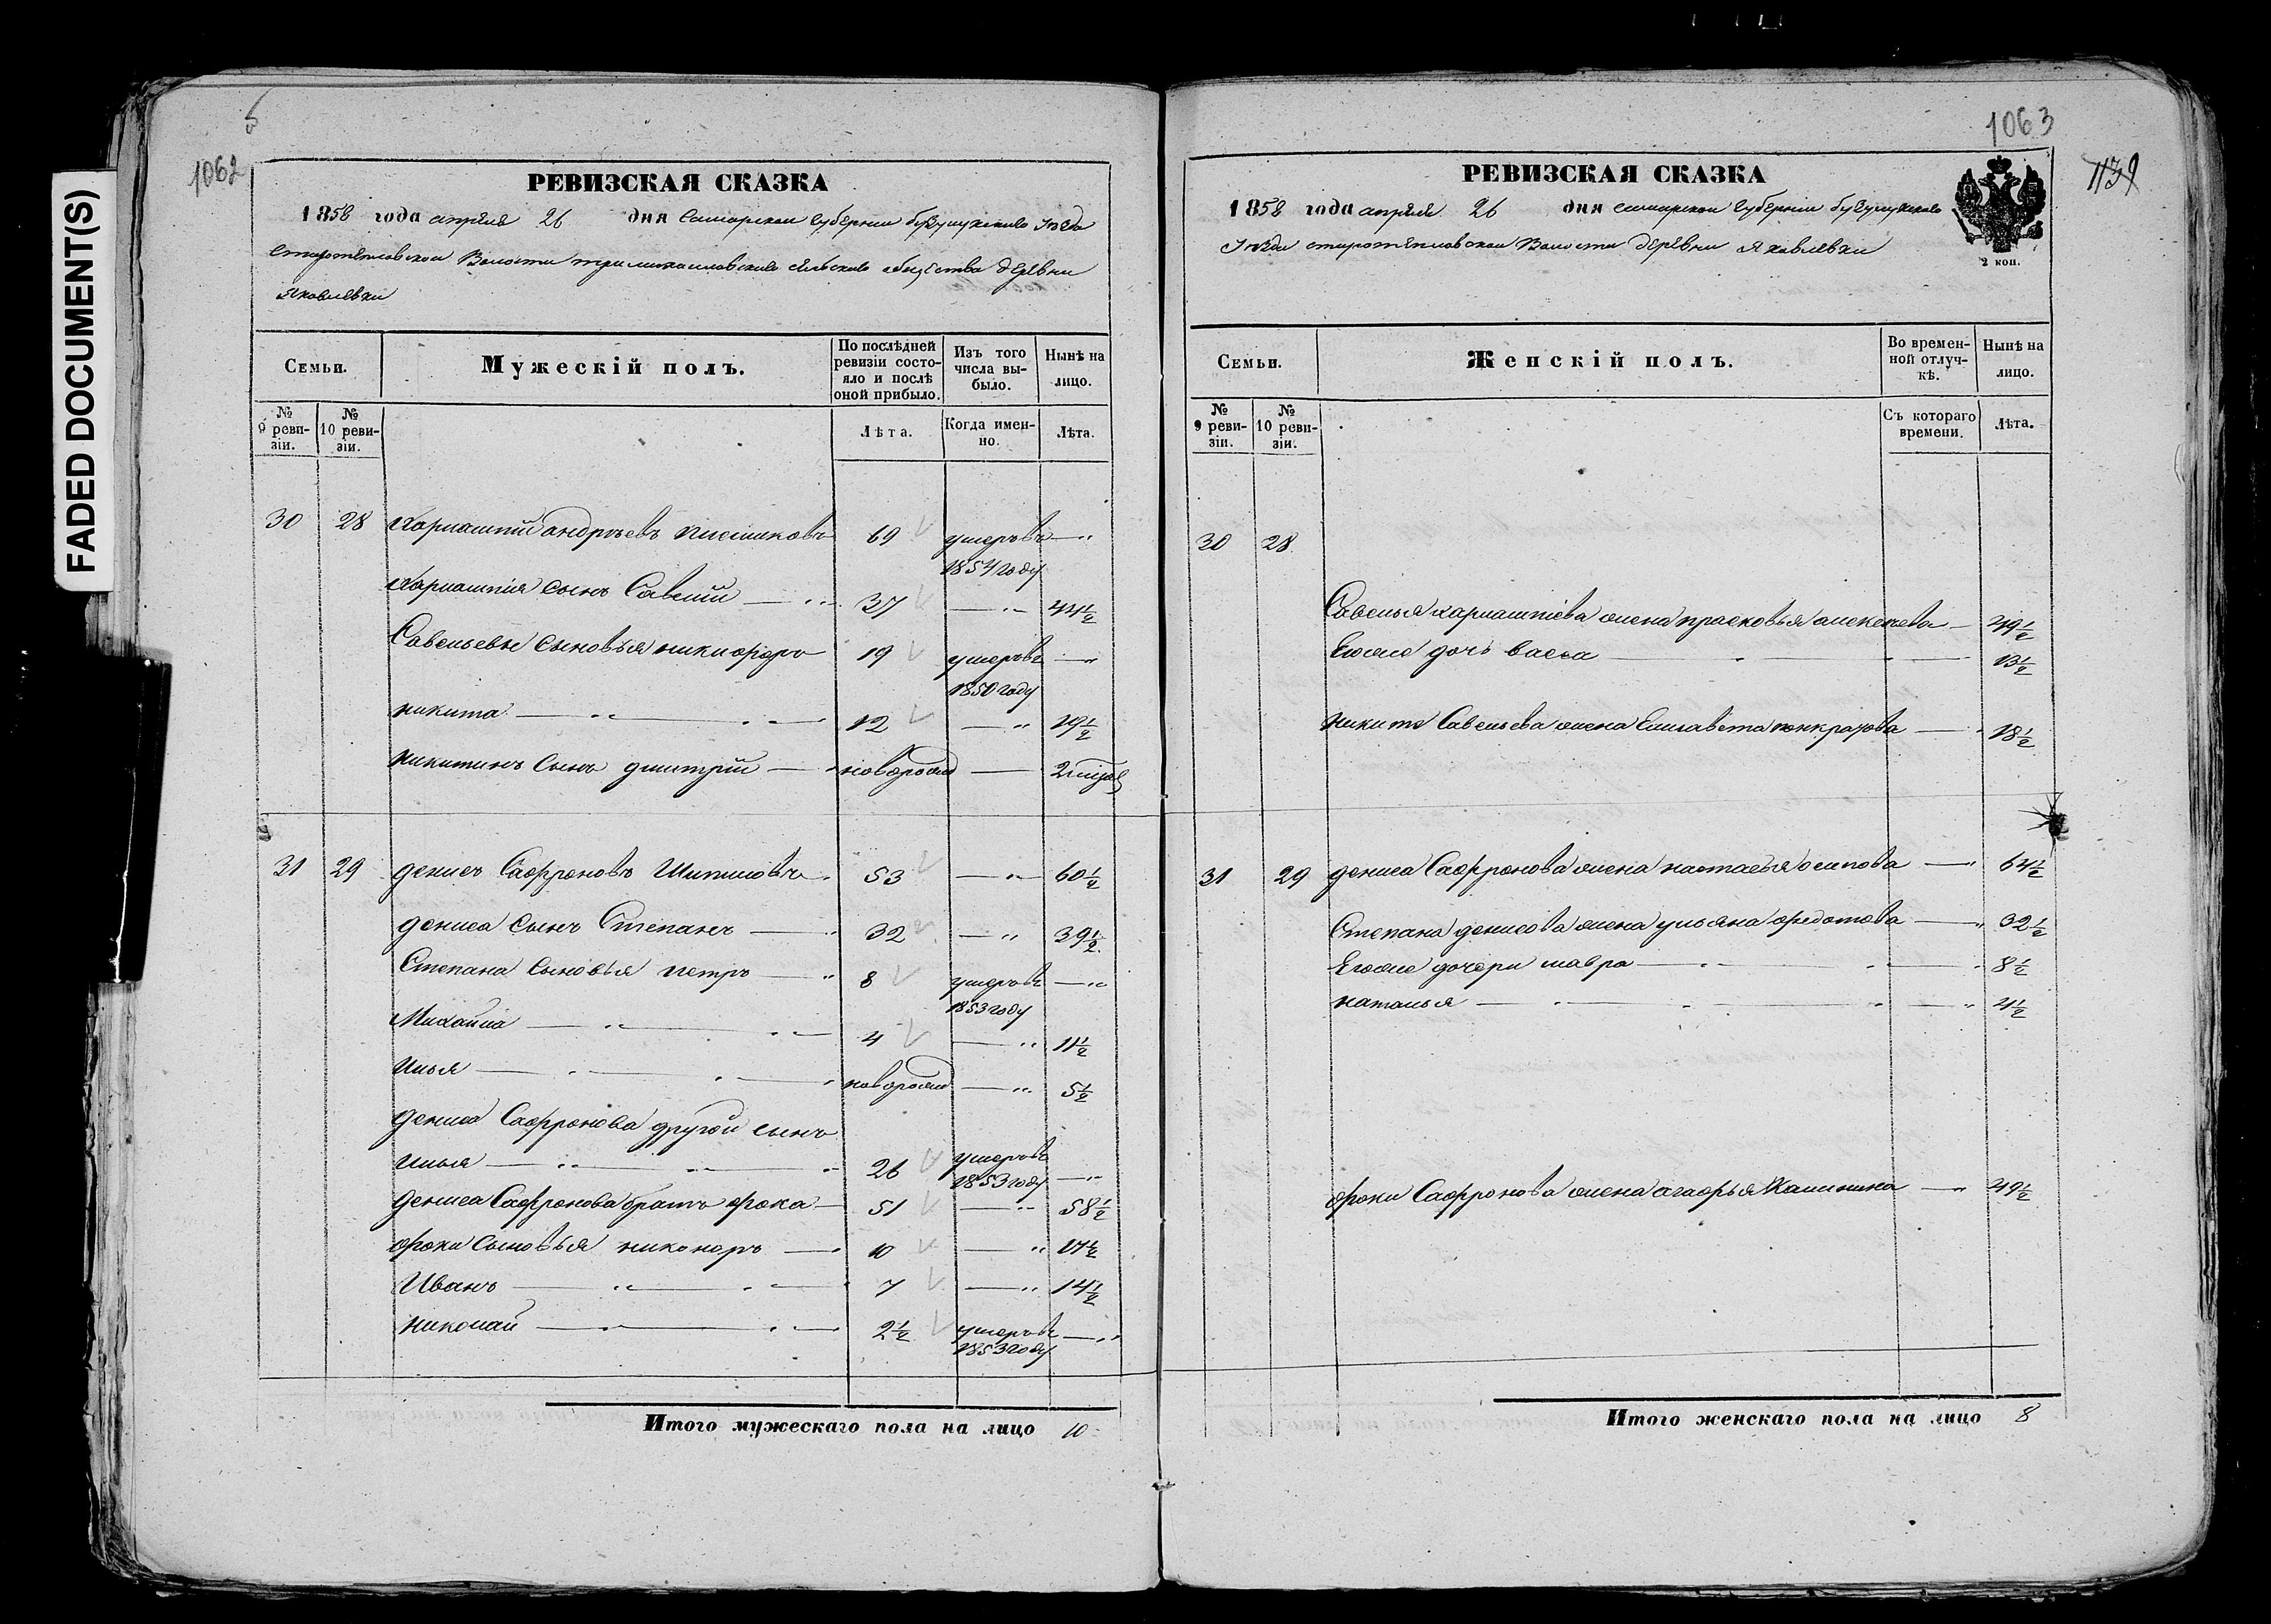 FADED DOCUMENT(S)
1062
РЕВИЗСКАЯ СКАЗКА
1858 года апреля 26 дня Самарской губернии бузулукского уезда
старотепловской Волости тримихаиловского сельского общества деревни
Яковлевки
Семьи.
Мужескій полъ.
По послѣдней ревизіи состояло и послѣ оной прибыло.
Изъ того числа выбыло.
Нынѣ на лицо.
№ 9 ревизіи.
№ 10 ревизіи.
Лѣта.
Когда именно.
Лѣта.
30 28 Харлампий андреевъ 69 умеръ въ —„
1854 году
Харлампия сынъ Савелий —„ 37 —„ 44½
Савельевы сыновья никифоръ 19 умеръ въ —„
1850 году
никита —„ 12 —„ 19½
никитинъ сынъ дмитрий — новорожд —
31 29 денисъ Сафроновъ Шипиловъ 53 —„ 60½
дениса сынъ Степанъ —„ 32 —„ 39½
Степана сыновья петръ —„ 8 умеръ въ —„
1853 году
Михайла —„ 4 —„ 11½
илья —„ новорожд —„ 5½
дениса Сафронова другой сынъ
илья —„ 26 умеръ въ 1853 году —„
дениса Сафронова братъ фока — 51 —„ 58½
фоки сыновья никоноръ —„ 10 —„ 17½
Иванъ —„ 7 —„ 14½
николай —„ 2½ умеръ въ —„
1853 году
Итого мужескаго пола на лицо 10
1063
1139
РЕВИЗСКАЯ СКАЗКА
1858 года апреля 26 дня самарской губернии бузулукского
уезда старотепловской Волости деревни Яковлевки
2 коп.
Семьи.
Женскій полъ.
Во временной отлучкѣ.
Нынѣ на лицо.
№ 9 ревизіи.
№ 10 ревизіи.
Съ котораго времени.
Лѣта.
30 28
Савелья харлампиева жена прасковья алексеева — 49½
Егоже дочь васса — 13½
никиты Савельева жена Елизавета панкратова —„ 18½
31 29 дениса Сафронова жена настасья осипова —„ 64½
Степана денисова жена ульяна федотова —„ 32½
Егоже дочери мавра —„ 8½
наталья —„ 4½
фоки Сафронова жена агафья Калинина —„ 49½
Итого женскаго пола на лицо 8